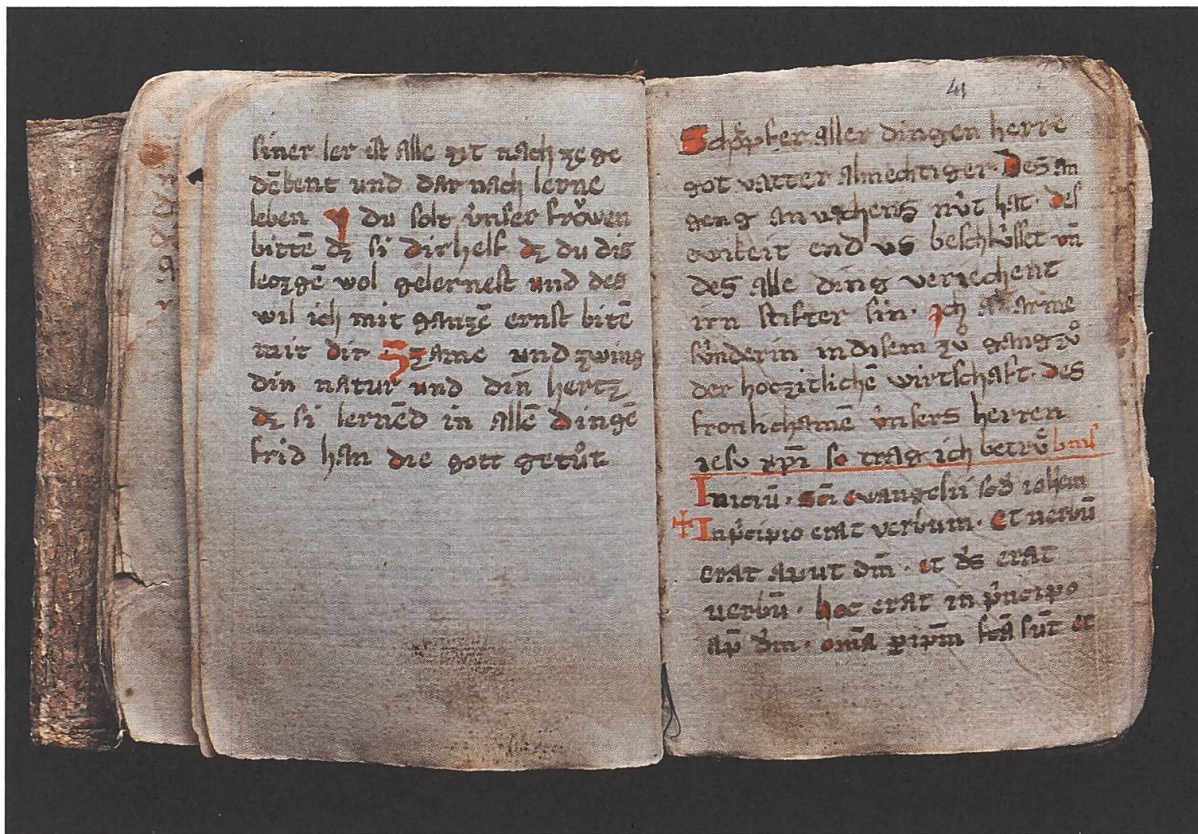 siner ler ist alle zit nach ze ge
dēkent und dar nach lerne
leben du solt ůnser frǒwen
bittē dz si dir helf dz du dis
leczgē wol gelernest und des
wil ich mit ganzē ernst bitē
mit dir Zame und zwing
din natur und din hertz
dz si lernēd in allē dingē
frid han die gott getůt
41
Schǒpfer aller dingen herre
got vatter almechtiger. Des an
geng anvahens nůt hat. des
ewikeit end us beschlůsset uñ
des alle ding veriechent
irn stifter sin. Ich arme
sůnderin in disem zů gang zů
der hoczitlichē wirtschaft. des
fronlichamē ůnsers herren
iesu xp̄i so trag ich betrůbnis
Iniciū. sc̄i ewangelii scd̄ iohem
+ In p̄ncipio erat verbum. Et uerbū
erat aput dm̄. et ds̄ erat
uerbū. hoc erat in p̄ncipo
ap̄ dm̄. om̄a p ip̄m fc̄a sūt et